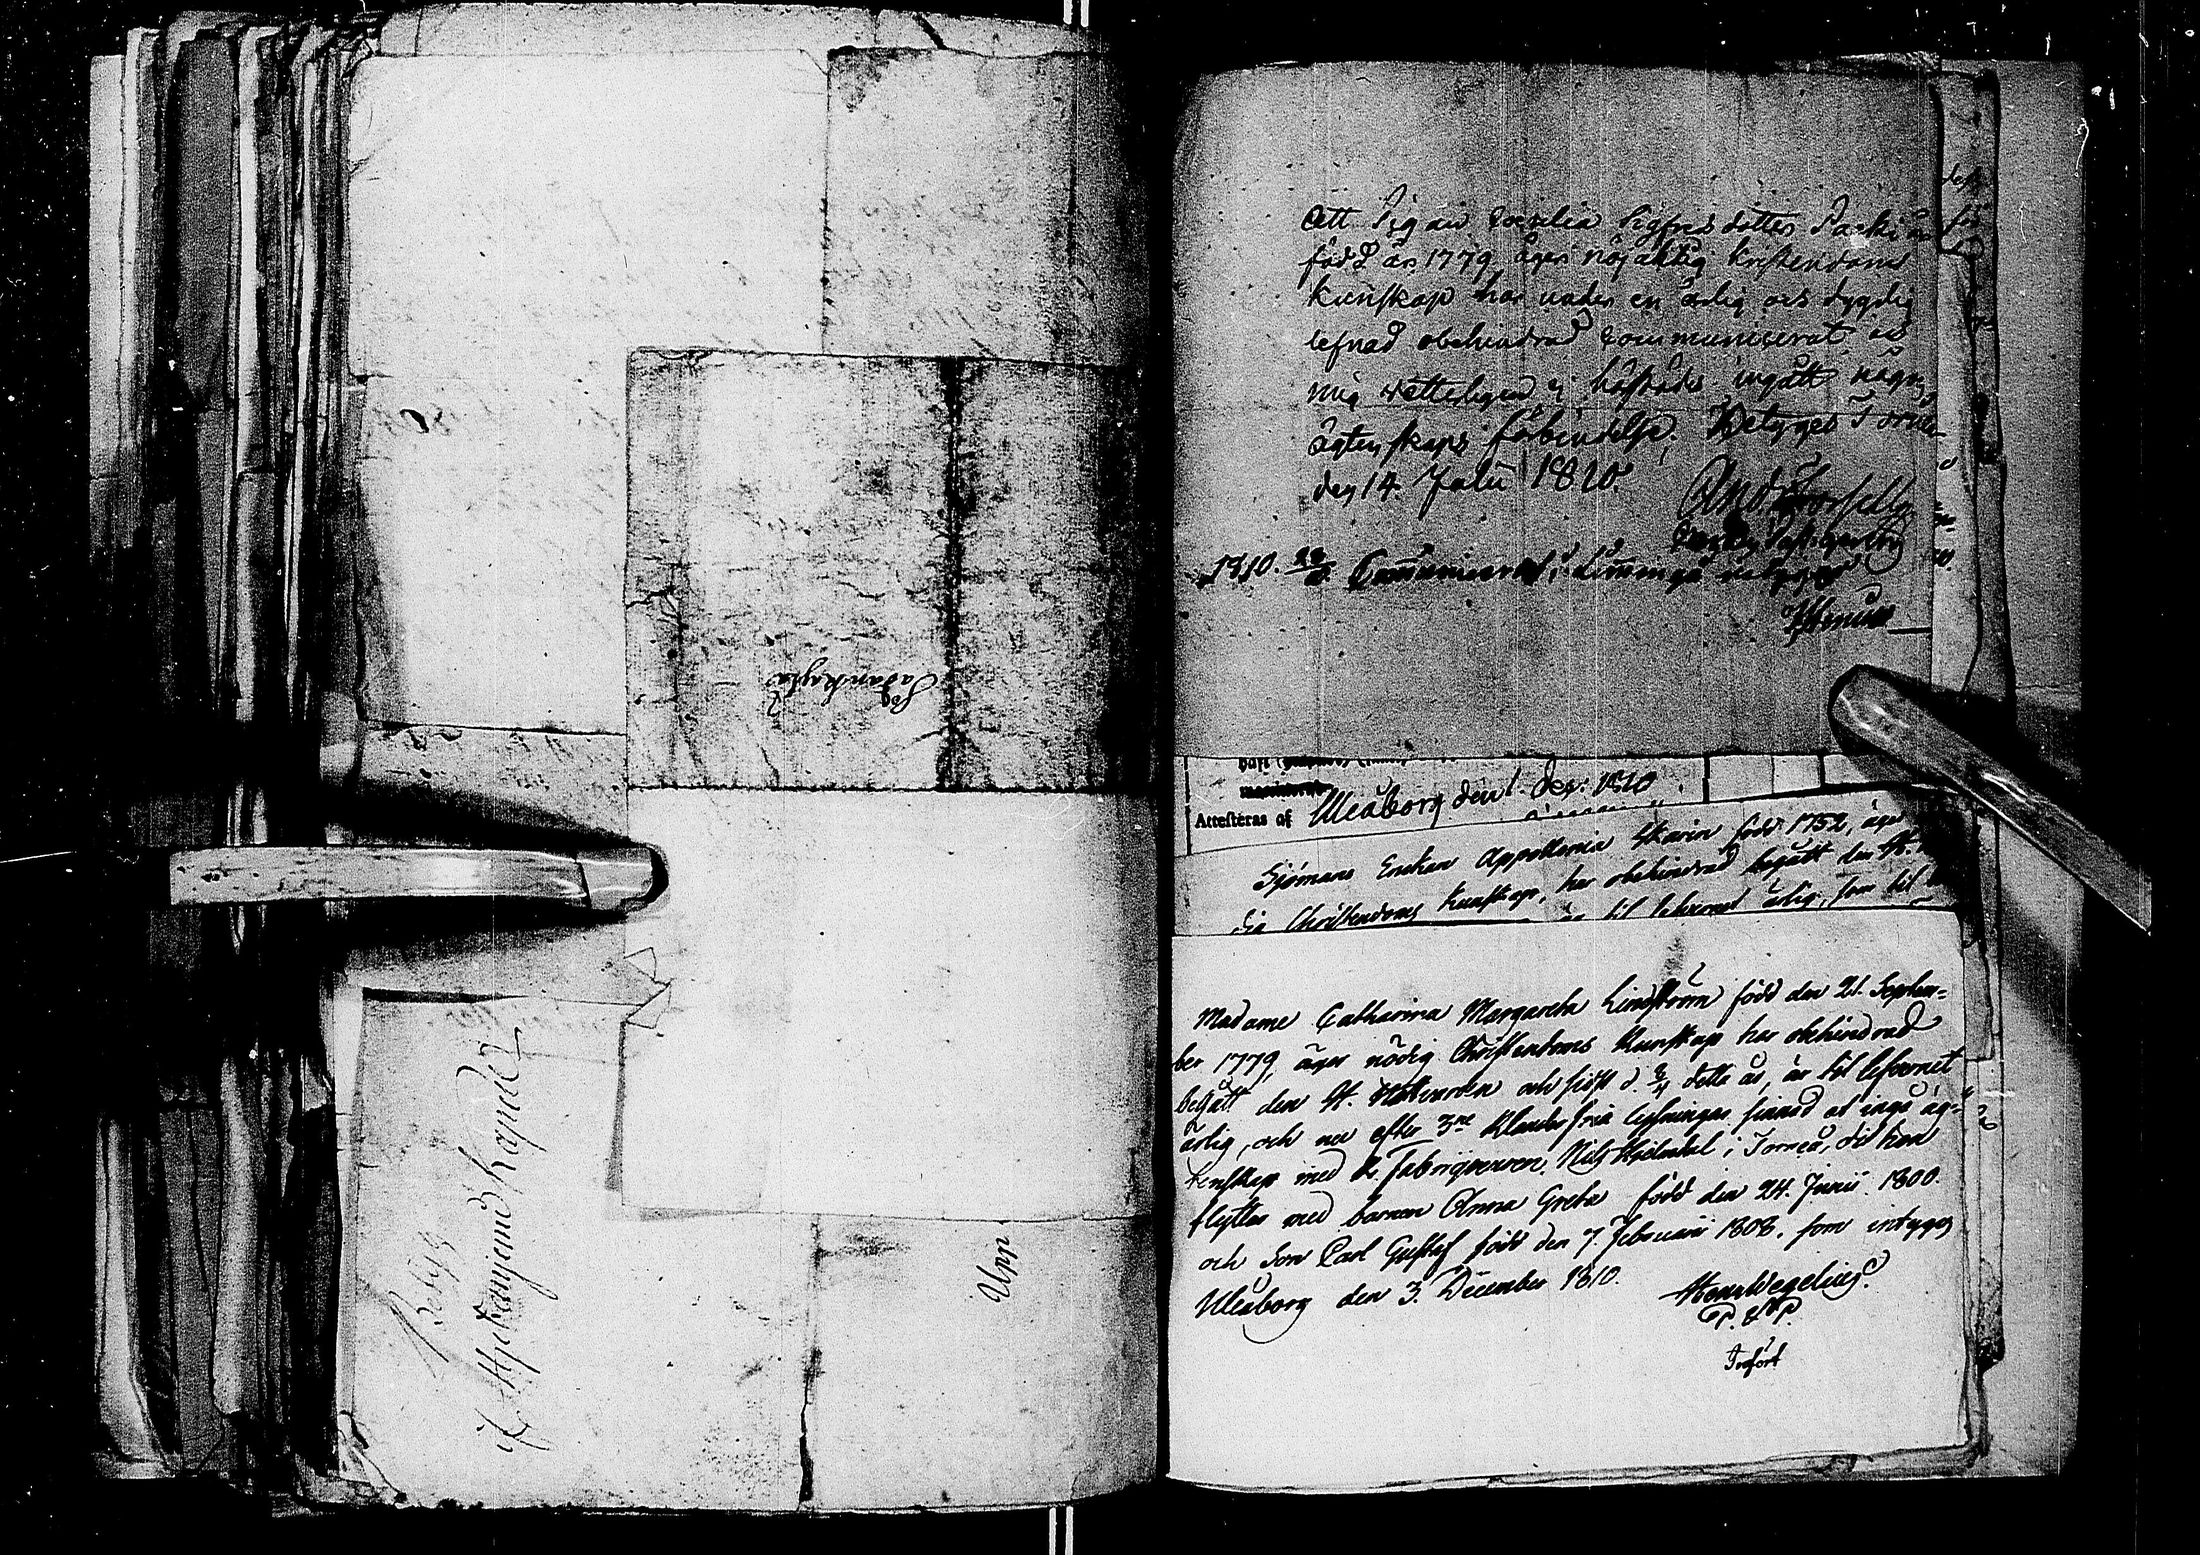 Betyg
Upp
Att Pigan Caecilia Sigfredsdotter
född år 1779, äger nöjaktig kristendoms
kunskap har under en ärlig och dygdig
lefnad obehindrad communicerat, och
mig vetterligen ej härstädes ingått någon
ägtenskaps förbindelse; betygas Torneå
den 14. Julii 1810.
1810. Communicerat i Limingo betygar
Attesteras af Uleåborg den 1. Dec. 1810
Sjömans Enkan Appollonia Skarin född 1752, äger
sin Christendoms kunskap, har obehindrad begått den H.
til lefvernet ärlig, som til
Madame Catharina Margareta Lindström född den 21. Septem=
ber 1779, äger nödig Christendoms Kunskap har obehindrad
begått den H. Nattvarden och sidst d. 8/4 detta år, är til lefvernet
ärlig, och nu efter 3ne Klanderfria lysningar sinnad at ingå äg=
tenskap med Fabriqueuren Nils i Torneå, dit hon
flyttar med barnen Anna Greta född den 24. Junii 1800.
och Son Carl Gustaf född den 7. Februarii 1808. som intygas
Uleåborg den 3. December 1810. Wegelius.
P. & P.
Infört